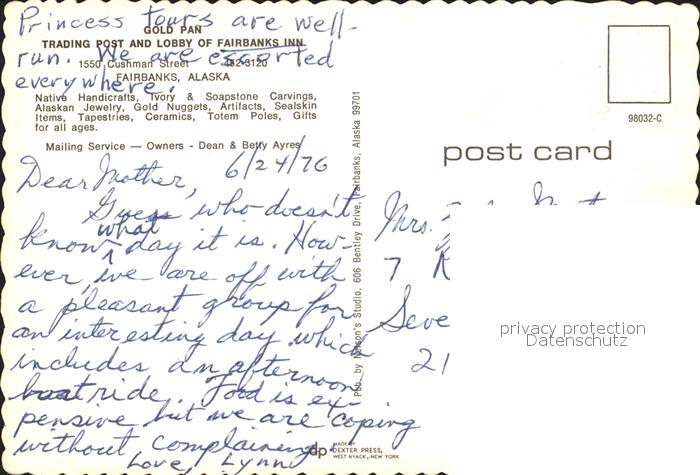 Princess tours are well-
GOLD PAN
TRADING POST AND LOBBY OF FAIRBANKS INN
run. We are escorted
1550 Cushman Street 452-3120
FAIRBANKS, ALASKA
everywhere.
Native Handicrafts, Ivory & Soapstone Carvings,
Alaskan Jewelry, Gold Nuggets, Artifacts, Sealskin
Items, Tapestries, Ceramics, Totem Poles, Gifts
for all ages.
Mailing Service — Owners - Dean & Betty Ayres
Dear Mother, 6/24/76
Guess who doesn't
know what day it is. How-
ever, we are off with
a pleasant group for
an interesting day which
includes an afternoon
boat ride. Food is ex-
pensive but we are coping
without complaining.
Love, Lynn
Pub. by Nelson's Studio, 606 Bentley Drive, Fairbanks, Alaska 99701
dp
MADE BY
DEXTER PRESS,
WEST NYACK, NEW YORK
98032-C
post card
Mrs.
7
Seve
21
privacy protection
Datenschutz